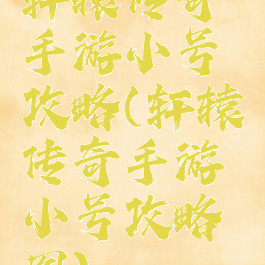 轩辕传奇
手游小号
攻略(轩辕
传奇手游
小号攻略
图)